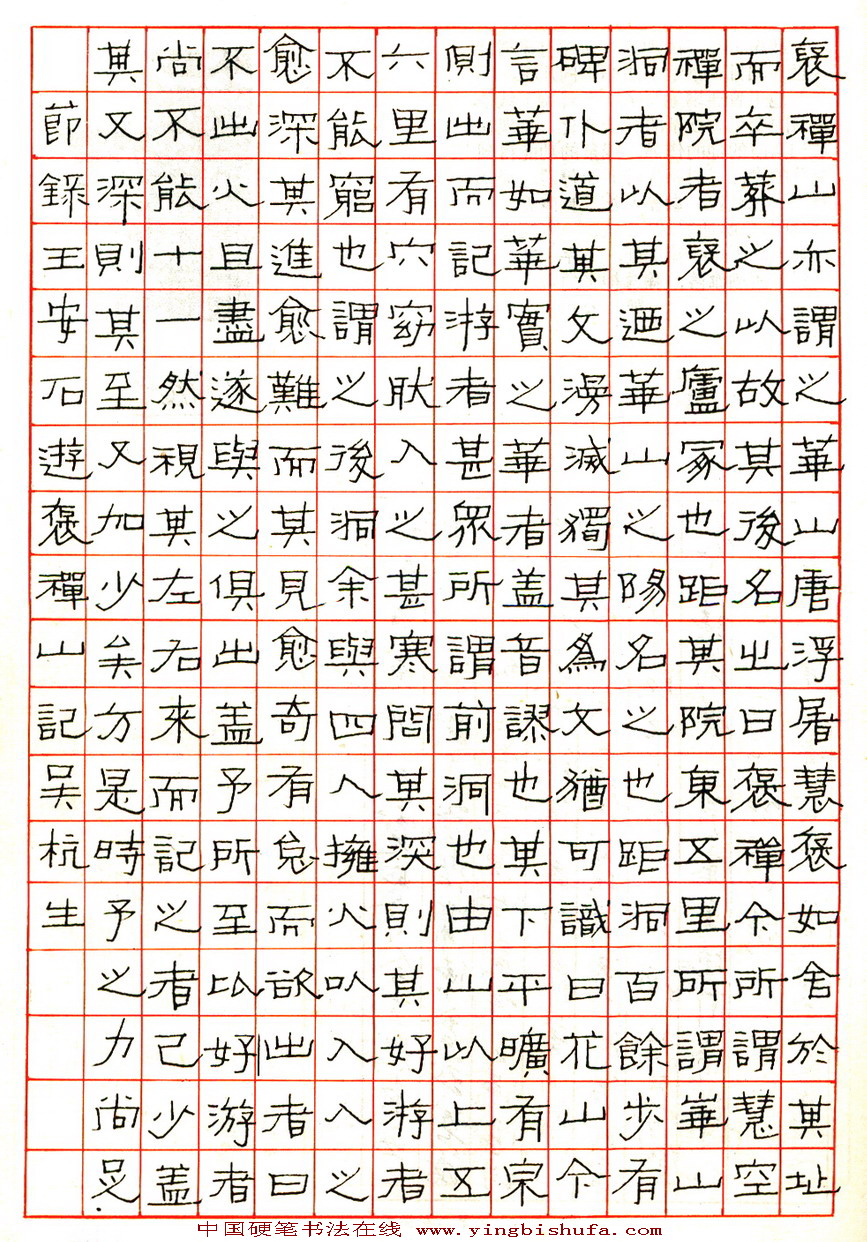 褒禪山亦謂之華山唐浮屠慧褒如舍於其址
而卒葬之以故其後名之曰褒禪今所謂慧空
禪院者褒之廬冢也距其院東五里所謂崋山
洞者以其迺華山之陽名之也距洞百餘步有
碑仆道其文漫滅獨其為文猶可識曰花山今
言華如華實之華者盖音謬也其下平曠有泉
側出而記游者甚眾所謂前洞也由山以上五
六里有穴窈耿入之甚寒問其深則其好游者
不能窮也謂之後洞余與四人擁火以入入之
愈深其進愈難而其見愈奇有怠而欲出者曰
不出火且盡遂與之俱出盖予所至比好游者
尚不能十一然視其左右來而記之者己少盖
其又深則其至又加少矣方是時予之力尚足
節錄王安石遊褒禪山記吴杭生
中国硬笔书法在线 www.yingbishufa.com